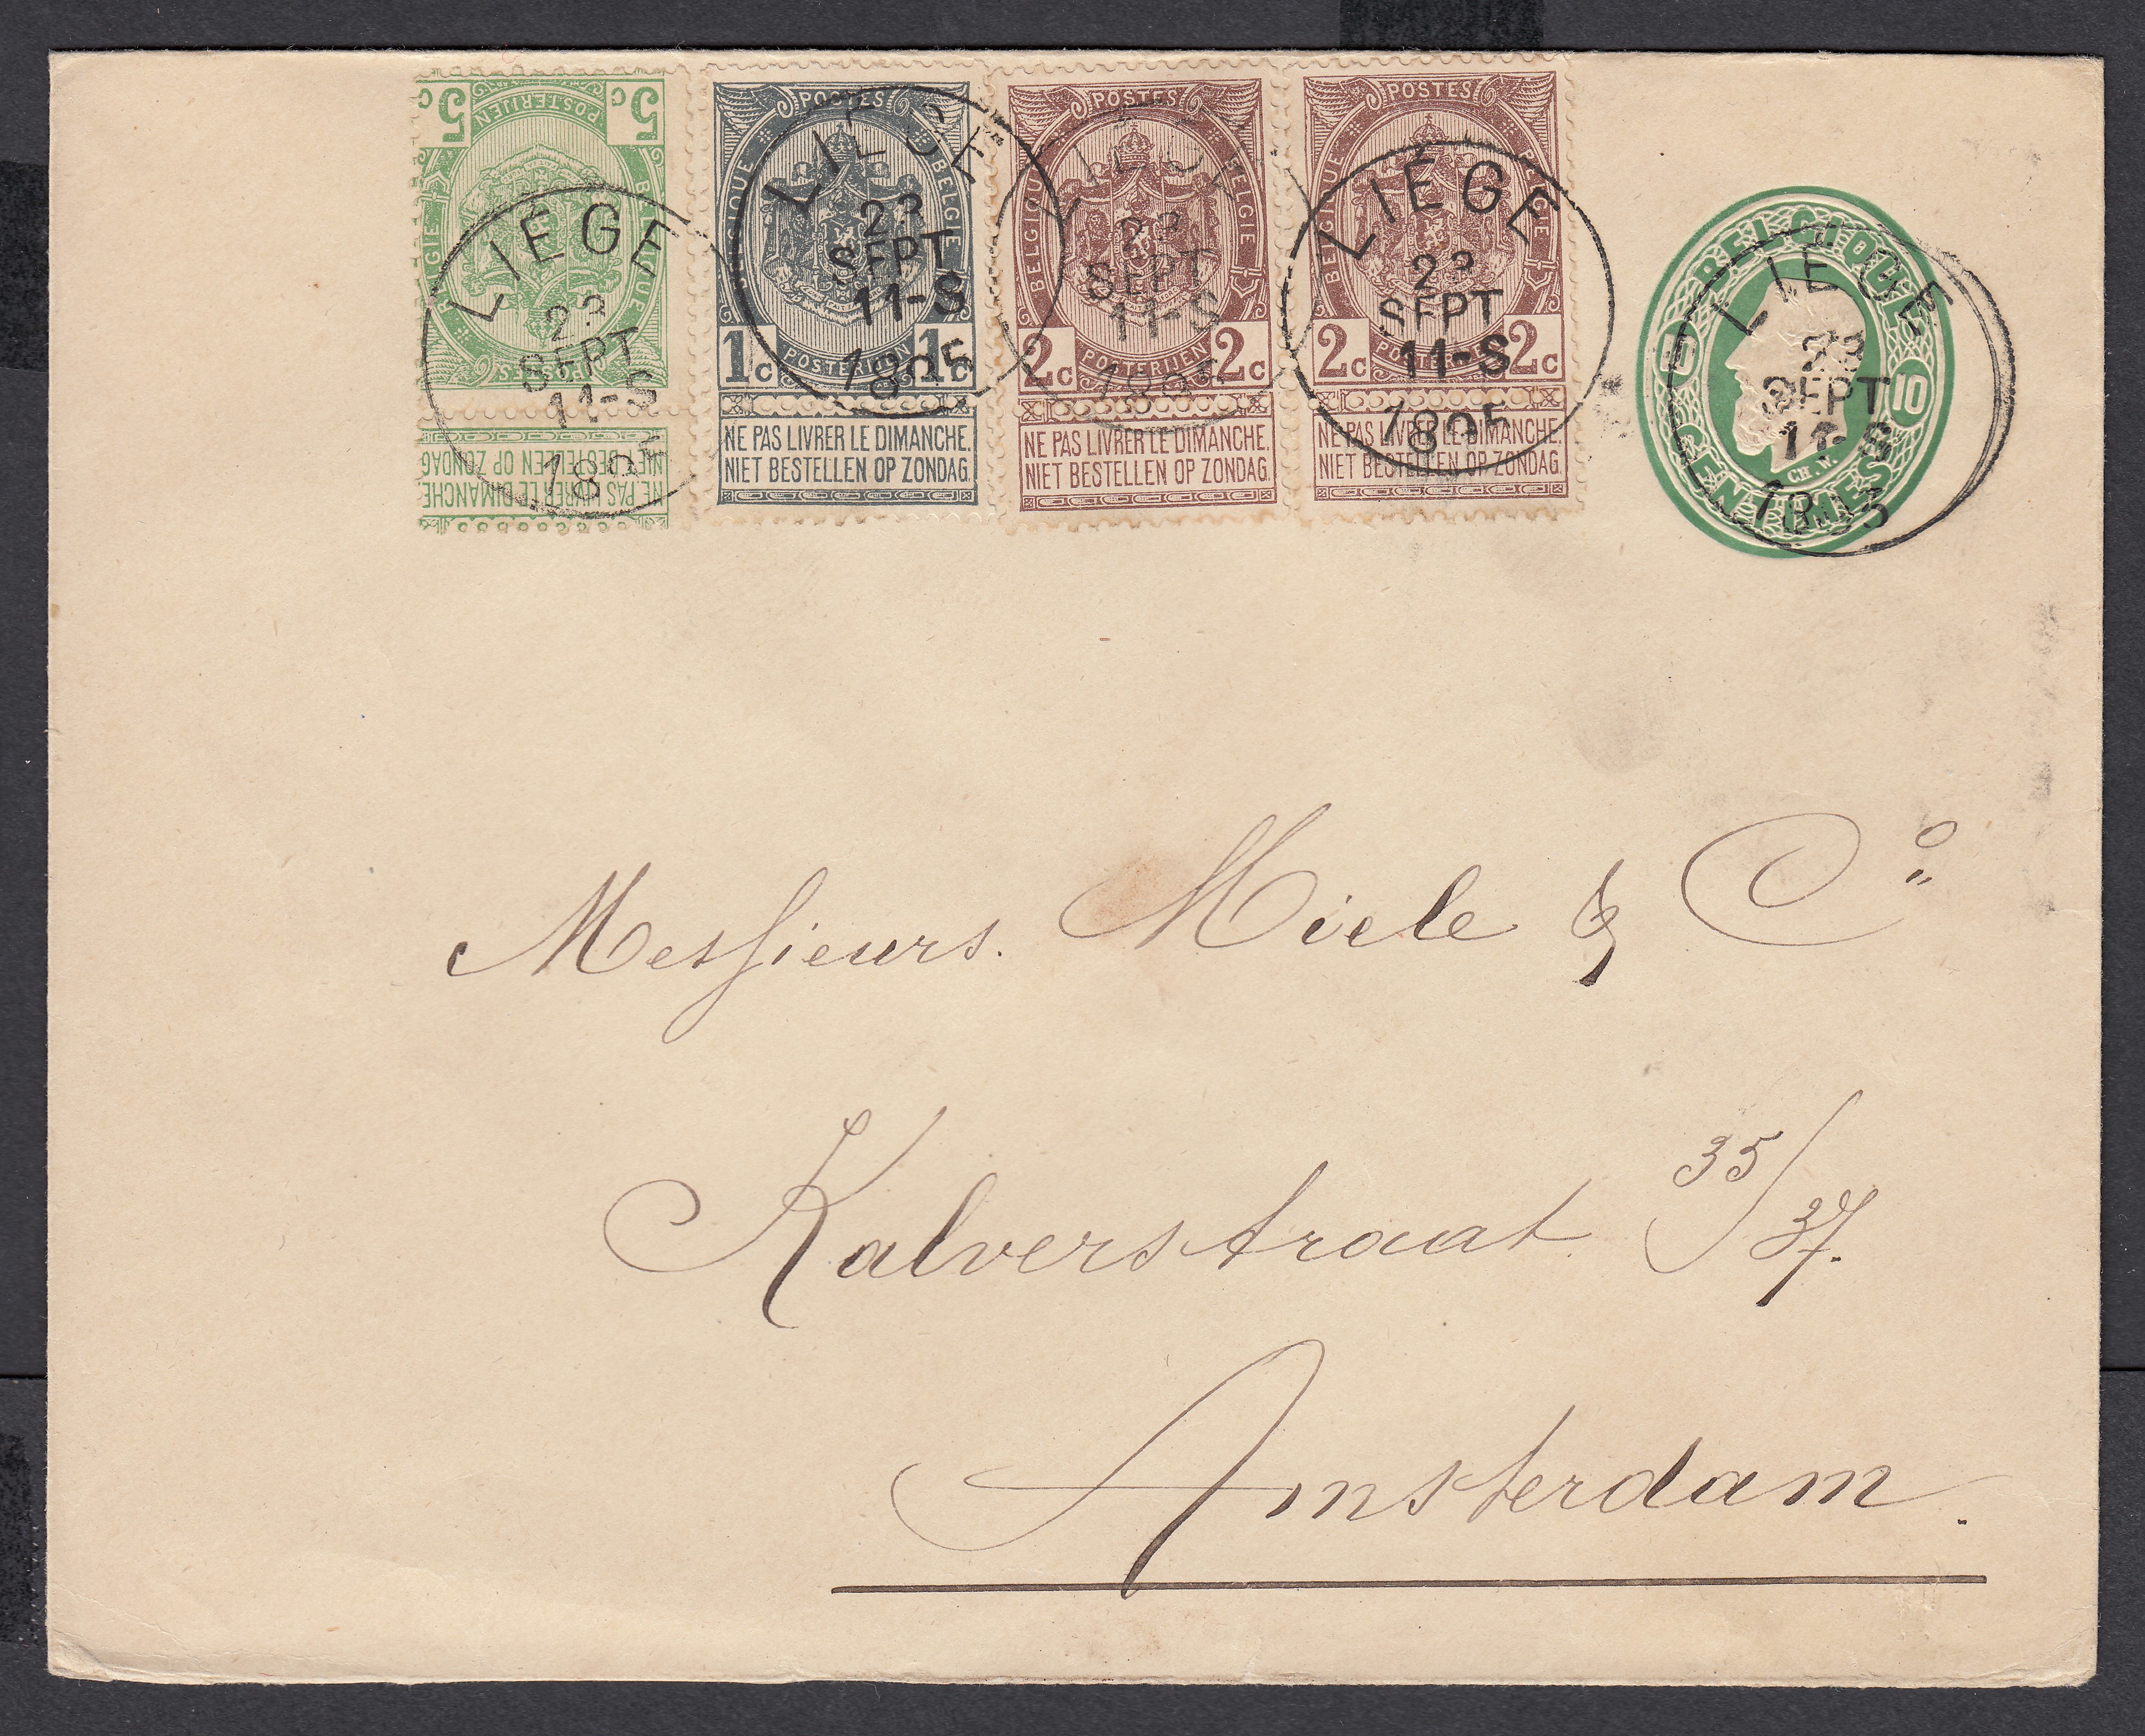 5c POSTERIJEN 5c
BELGIE BELGIQUE
POSTES
NIET BESTELLEN OP ZONDAG
NE PAS LIVRER LE DIMANCHE
POSTES
BELGIQUE BELGIE
1c POSTERIJEN 1c
NE PAS LIVRER LE DIMANCHE.
NIET BESTELLEN OP ZONDAG.
POSTES
BELGIQUE BELGIE
2c POSTERIJEN 2c
NE PAS LIVRER LE DIMANCHE.
NIET BESTELLEN OP ZONDAG.
POSTES
BELGIQUE BELGIE
2c POSTERIJEN 2c
NE PAS LIVRER LE DIMANCHE.
NIET BESTELLEN OP ZONDAG.
BELGIQUE
10 10
CH.W.
CENTIMES
LIEGE
23
SEPT
11-S
1895
LIEGE
23
SEPT
11-S
1895
LIEGE
23
SEPT
11-S
1895
LIEGE
23
SEPT
11-S
1895
LIEGE
23
SEPT
11-S
1895
Messieurs. Miele & Co
Kalverstraat 35/37.
Amsterdam.